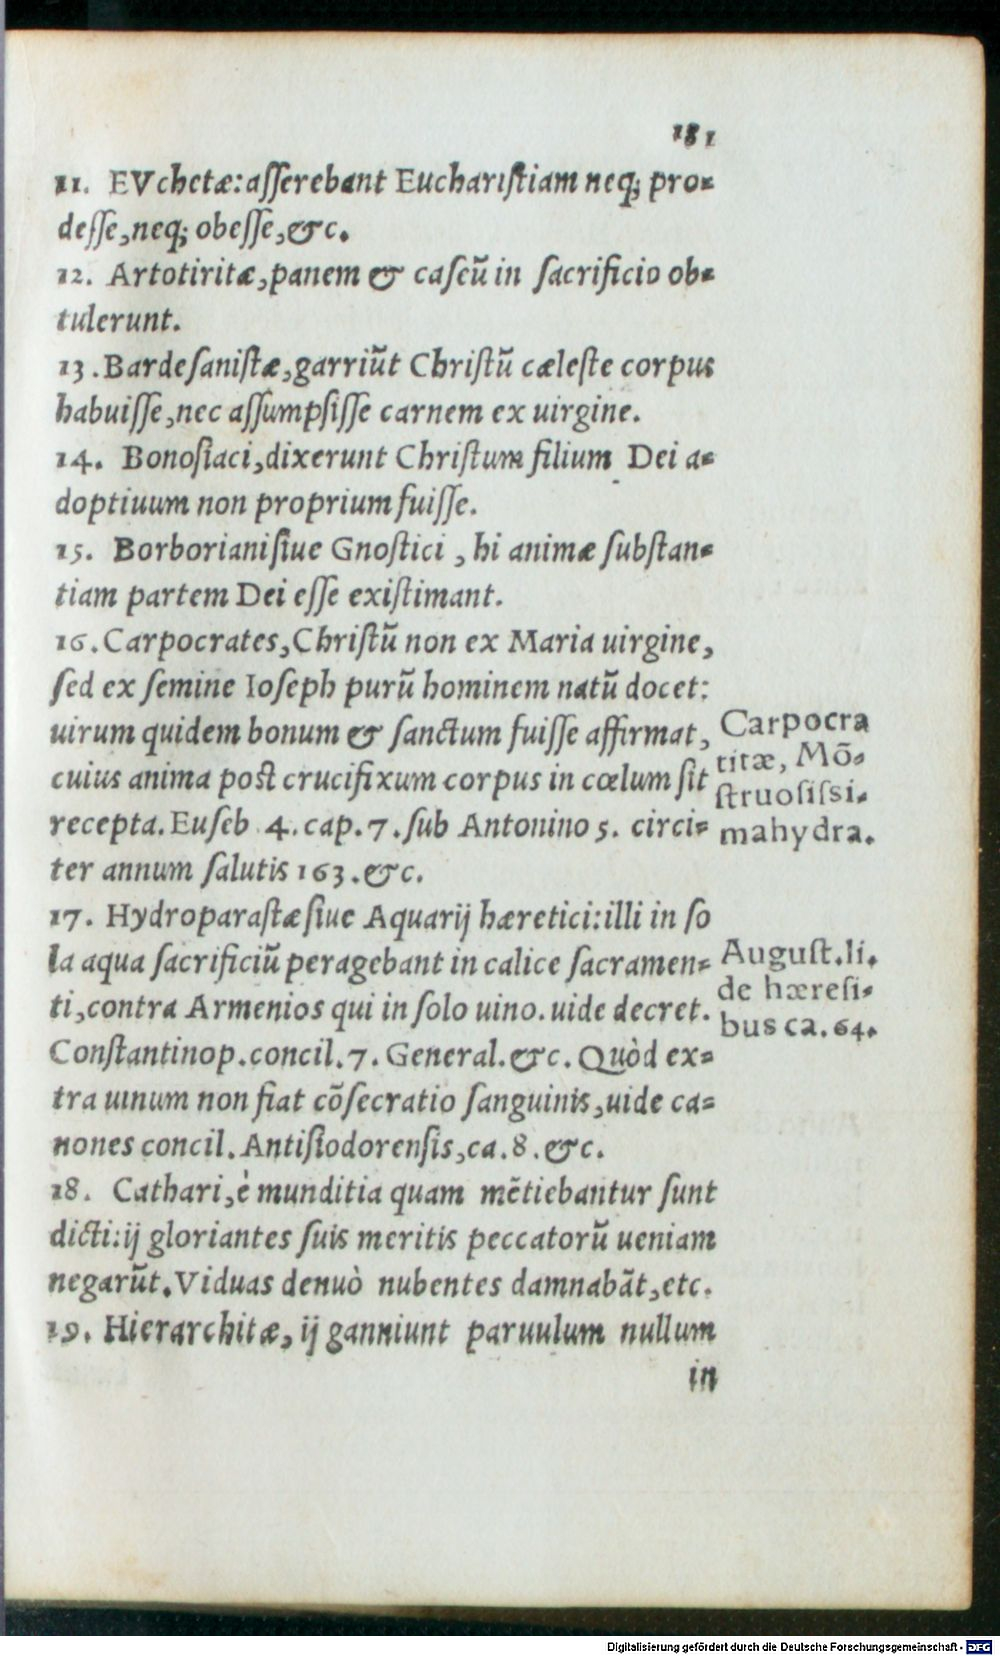 181
11. EVchetæ:aſſerebant Euchariſtiam neq; pro-
deſſe,neq; obeſſe,&c.
12. Artotiritæ,panem & caſeũ in ſacrificio ob-
tulerunt.
13.Bardeſaniſtæ,garriũt Chriſtũ cæleſte corpus
habuiſſe,nec aſſumpſiſſe carnem ex uirgine.
14. Bonoſiaci,dixerunt Chriſtum filium Dei a-
doptiuum non proprium fuiſſe.
15. Borborianiſiue Gnoſtici , hi animæ ſubſtan-
tiam partem Dei eſſe exiſtimant.
16.Carpocrates,Chriſtũ non ex Maria uirgine,
ſed ex ſemine Ioſeph purũ hominem natũ docet:
uirum quidem bonum & ſanctum fuiſſe affirmat,
cuius anima poſt crucifixum corpus in cœlum ſit
recepta.Euſeb.4.cap.7.ſub Antonino 5. circi-
ter annum ſalutis 163.&c.
Carpocra
titæ, Mõ-
ſtruoſiſsi-
mahydra.
17. Hydroparaſtæſiue Aquarij hæretici:illi in ſo
la aqua ſacrificiũ peragebant in calice ſacramen-
ti,contra Armenios qui in ſolo uino.uide decret.
Conſtantinop.concil.7.General.&c.Quòd ex-
tra uinum non fiat cõſecratio ſanguinis,uide ca-
nones concil.Antiſiodorenſis,ca.8.&c.
Auguſt.li.
de hæreſi-
bus ca.64.
18. Cathari,è munditia quam mẽtiebantur ſunt
dicti:ij gloriantes ſuis meritis peccatorũ ueniam
negarũt.Viduas denuò nubentes damnabãt,etc.
19. Hierarchitæ, ij ganniunt paruulum nullum
in
Digitalisierung gefördert durch die Deutsche Forschungsgemeinschaft - DFG